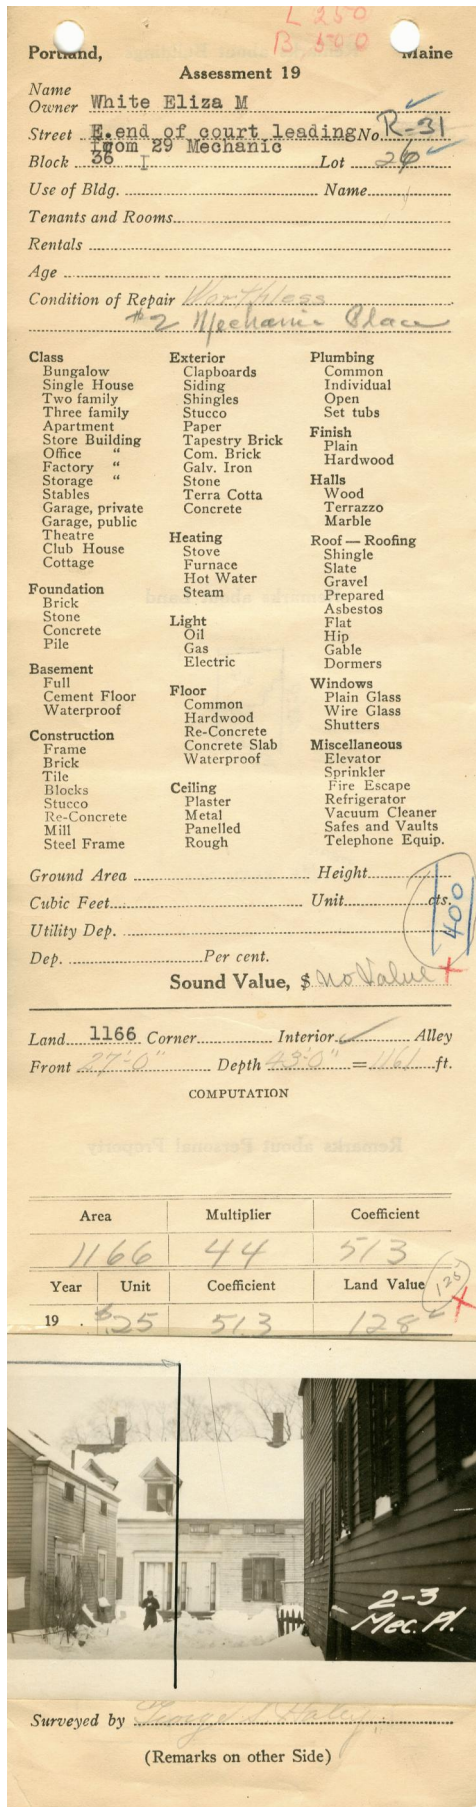 L 250
B 500
Portland, Maine
Assessment 19
Name
Owner White Eliza M
Street E.end of court leading No. R-31
from 29 Mechanic
Block 36 I Lot 26
Use of Bldg. Name
Tenants and Rooms
Rentals
Age
Condition of Repair Worthless
#2 Mechanic Place
Class
Bungalow
Single House
Two family
Three family
Apartment
Store Building
Office "
Factory "
Storage "
Stables
Garage, private
Garage, public
Theatre
Club House
Cottage
Foundation
Brick
Stone
Concrete
Pile
Basement
Full
Cement Floor
Waterproof
Construction
Frame
Brick
Tile
Blocks
Stucco
Re-Concrete
Mill
Steel Frame
Exterior
Clapboards
Siding
Shingles
Stucco
Paper
Tapestry Brick
Com. Brick
Galv. Iron
Stone
Terra Cotta
Concrete
Heating
Stove
Furnace
Hot Water
Steam
Light
Oil
Gas
Electric
Floor
Common
Hardwood
Re-Concrete
Concrete Slab
Waterproof
Ceiling
Plaster
Metal
Panelled
Rough
Plumbing
Common
Individual
Open
Set tubs
Finish
Plain
Hardwood
Halls
Wood
Terrazzo
Marble
Roof — Roofing
Shingle
Slate
Gravel
Prepared
Asbestos
Flat
Hip
Gable
Dormers
Windows
Plain Glass
Wire Glass
Shutters
Miscellaneous
Elevator
Sprinkler
Fire Escape
Refrigerator
Vacuum Cleaner
Safes and Vaults
Telephone Equip.
Ground Area Height
Cubic Feet Unit cts.
400
Utility Dep.
Dep. Per cent.
Sound Value, $ no Value +
Land 1166 Corner Interior ✓ Alley
Front 27'-0" Depth 43'-0" = 1161 ft.
COMPUTATION
Area Multiplier Coefficient
1166 44 513
Year Unit Coefficient Land Value 125
19 . $.25 513 128
2-3
Mec. Pl.
Surveyed by George S Haley
(Remarks on other Side)